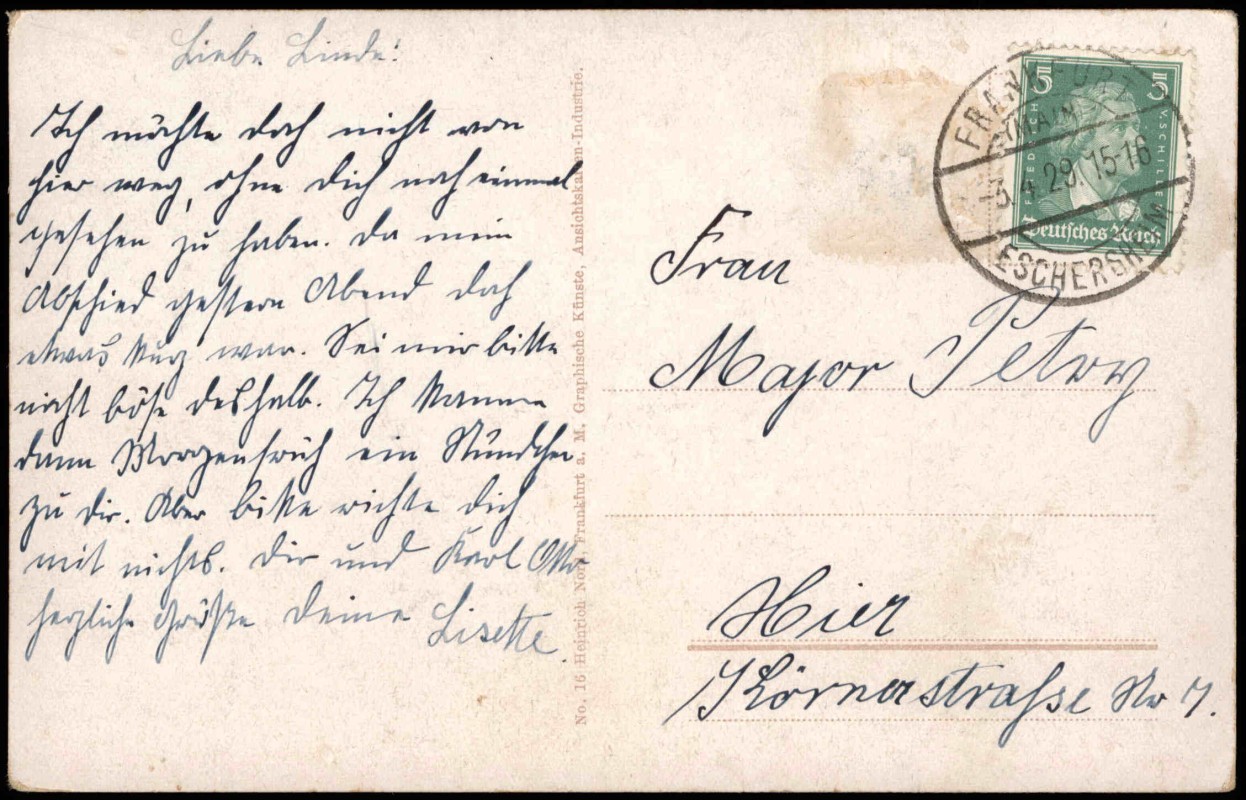 Liebe Linde!
Ich möchte doch nicht von
hier weg, ohne Dich noch einmal
gesehen zu haben. Da mein
Abschied gestern Abend doch
etwas kurz war. Sei mir bitte
nicht böse deshalb. Ich komme
dann Morgenfrüh ein Stündchen
zu dir. Aber bitte richte dich
mit nichts. Dir und Karl Otto
herzliche Grüße deine Lisette.
No. 16 Heinrich Frankfurt a. M. Graphische Künste, Ansichtskarten-Industrie.
5 5
FRIEDRICH V. SCHILLER
Deutsches Reich
FRANKFURT
(MAIN)
-3.4.29.15-16
ESCHERSHEIM
Frau
Major Petry
Hier
Körnerstraße No 7.